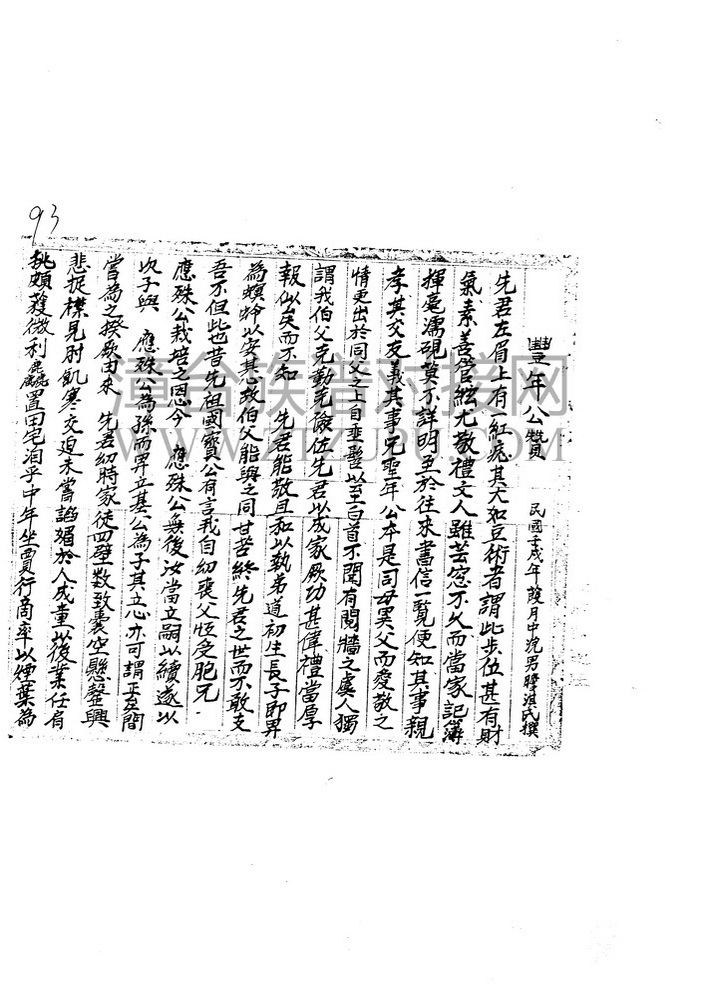 93
豐年公贊 民國壬戌年 月中浣男 淇氏撰
先君左眉上有一紅痣其大如豆術者謂此步位甚有財
氣素善管絃尤敬禮文人雖芸窓不久而當家記簿
揮毫濡硯莫不詳明至於往來書信一覽便知其事親
孝其交友義其事兄聖年公本是同母異父而愛敬之
情更出於同父之上自垂髫以至白首不聞有鬩牆之虞人獨
謂我伯父克勤克儉佐先君以成家厥功甚偉禮當厚
報似矣而不知 先君能敬且和以執弟道初生長子即畀
為螟蛉以安其心故伯父能與之同甘苦終先君之世而不敢支
吾不但此也昔先祖國寶公有言我自幼喪父恆受胞兄
應殊公栽培之恩今 應殊公無後汝當立嗣以續遂以
次子與 應殊公為孫而畀立基公為子其立心亦可謂正矣間
嘗為之揆厥由來 先君幼時家徒四壁數致囊空懸罄興
悲捉襟見肘飢寒交迫未嘗諂媚於人成童以後業任肩
挑頗獲微利麤置田宅洎乎中年坐賈行商率以煙葉為
漳台族譜對接網
WWW.ZTZUPU.COM